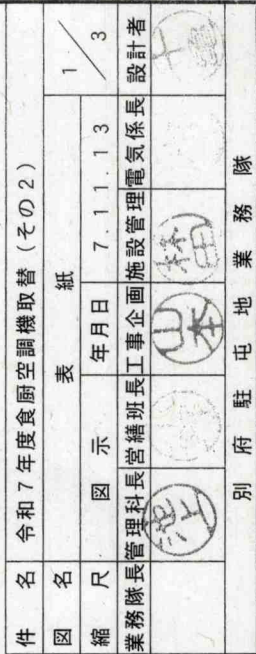 件名 令和7年度食厨空調機取替(その2)
図名 表紙 1/3
縮尺 図示 年月日 7.11.13
業務隊長 管理科長 営繕班長 工事企画 施設管理 電気係長 設計者
池上 山本
別府駐屯地業務隊